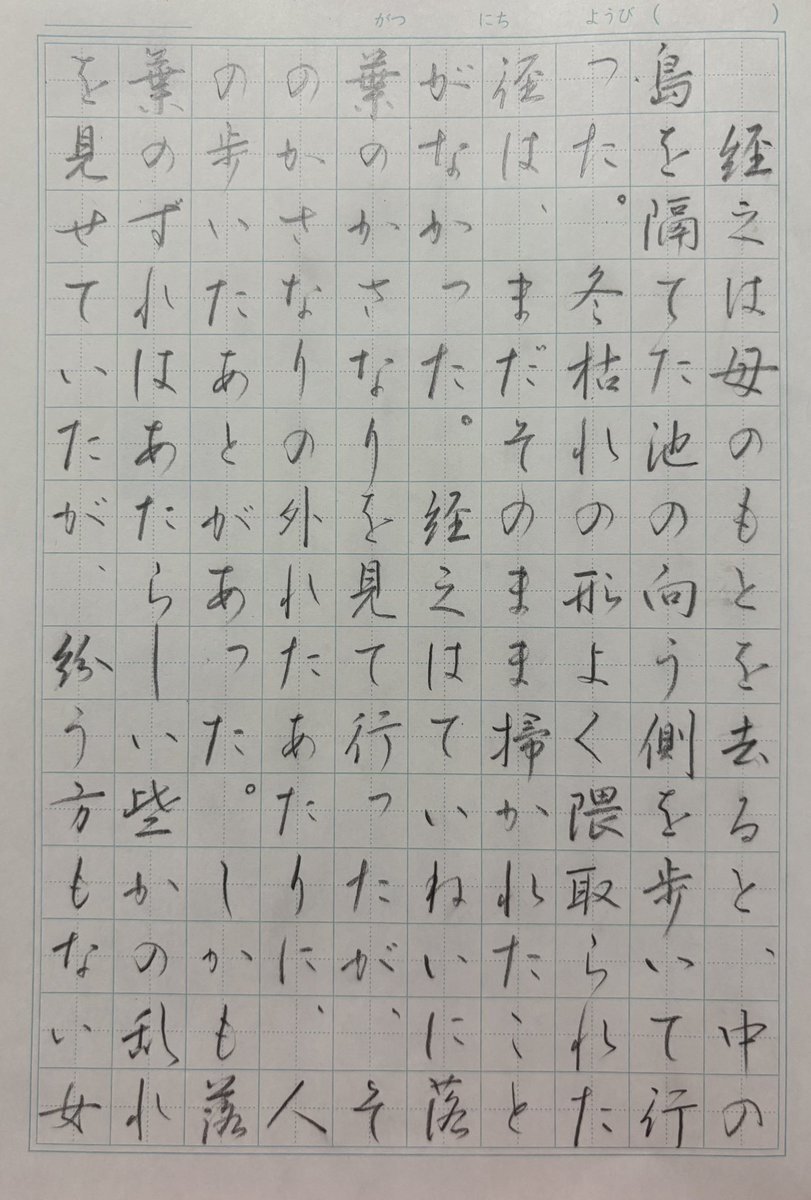 がつ　にち　ようび（　）
経之は母のもとを去ると、中の
島を隔てた池の向う側を歩いて行
った。冬枯れの形よく隈取られた
径は、まだそのまま掃かれたこと
がなかった。経之はていねいに落
葉のかさなりを見て行ったが、そ
のかさなりの外れたあたりに、人
の歩いたあとがあった。しかも落
葉のずれはあたらしい些かの乱れ
を見せていたが、紛う方もない女